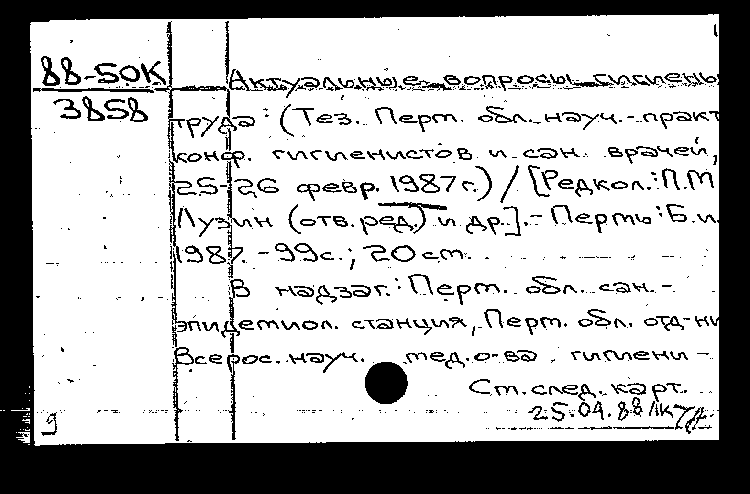 88-50К
3858
Актуальные вопросы гигиены
труда : (Тез. Перм. обл. науч.-практ
конф. гигиенистов и сан. врачей,
25-26 февр. 1987 г.) / [Редкол.: П.М
Лузин (отв. ред.) и др.].- Пермь : Б.и.
1987. - 99 с. ; 20 см.
В надзаг.: Перм. обл. сан.-
эпидемиол. станция, Перм. обл. отд-ни
Всерос. науч. мед. о-ва гигиени-
См. след. карт.
25.04.88
9